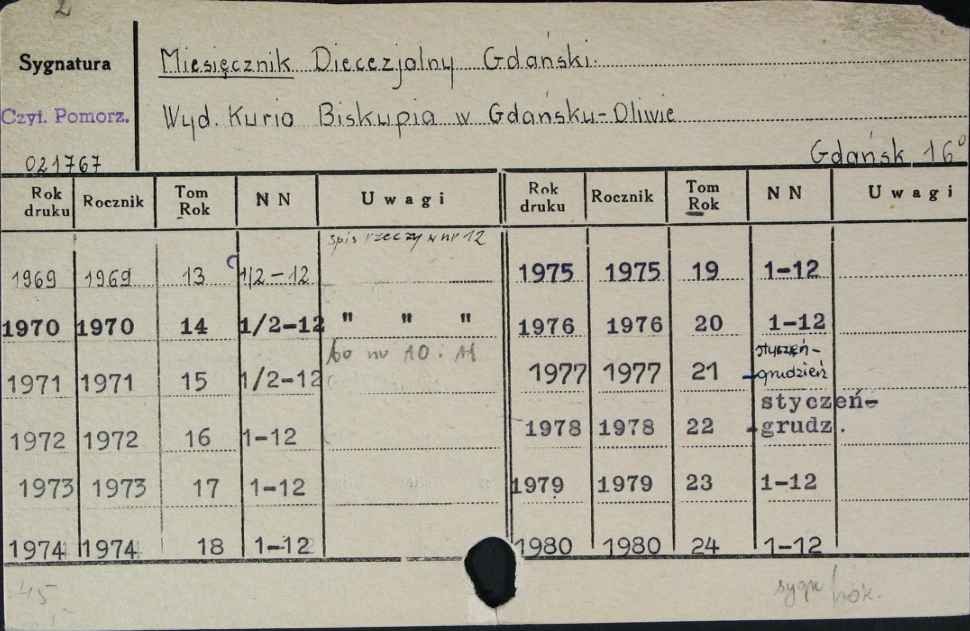 2
Sygnatura
Miesięcznik Diecezjalny Gdański.
Czyt. Pomorz.
Wyd. Kuria Biskupia w Gdańsku-Oliwie
021767
Gdańsk 16°
Rok druku Rocznik Tom Rok NN Uwagi Rok druku Rocznik Tom Rok NN Uwagi
spis rzeczy w nr 12
1969 1969 13 1/2-12 1975 1975 19 1-12
1970 1970 14 1/2-12 " " " 1976 1976 20 1-12
nr 10 i 11
1971 1971 15 1/2-12 1977 1977 21 styczeń-
-grudzień
1972 1972 16 1-12 1978 1978 22 styczeń-
-grudz.
1973 1973 17 1-12 1979 1979 23 1-12
1974 1974 18 1-12 1980 1980 24 1-12
45